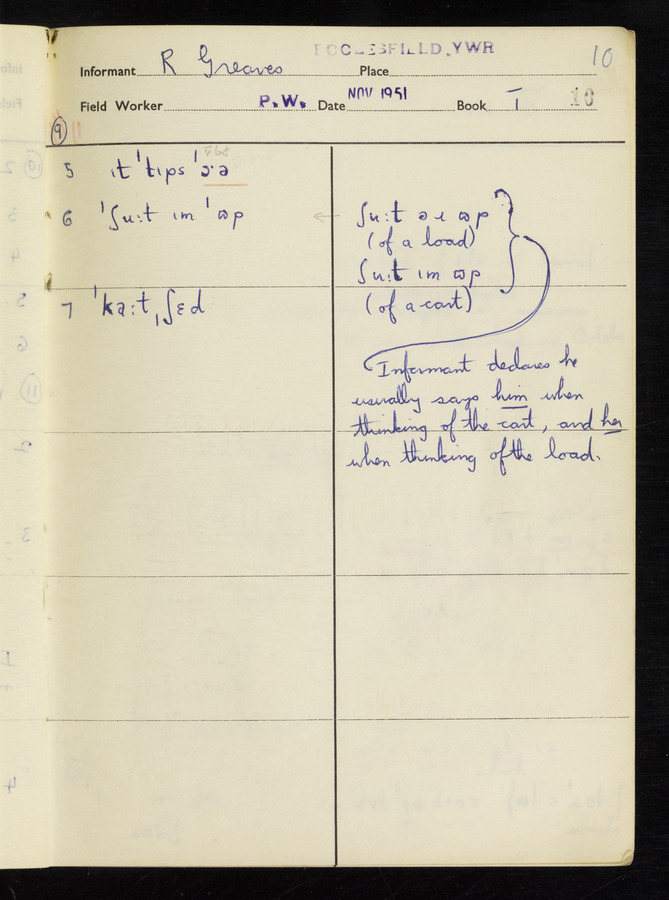 ECCLESFIELD. YWR
10
Informant R Greaves Place
Field Worker P.W. Date NOV 1951 Book I 10
9
5 ɪt ˈtɪps ˈɔːə
6 ˈʃuːt ɪm ˈʊp ← ʃuːt əɪ ʊp
(of a load)
ʃuːt ɪm ʊp
7 ˈkaːtˌʃɛd (of a cart)
Informant declares he
usually says him when
thinking of the cart, and her
when thinking of the load.